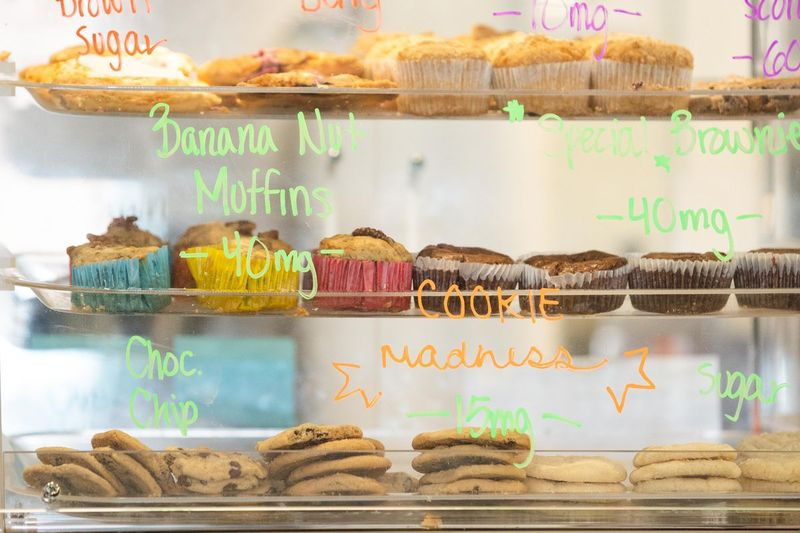 Brown
Sugar
-10mg-
-60
Banana Nut
Muffins
-40mg-
Special Brownie
-40mg-
COOKIE
madness
-15mg-
Choc.
Chip
Sugar